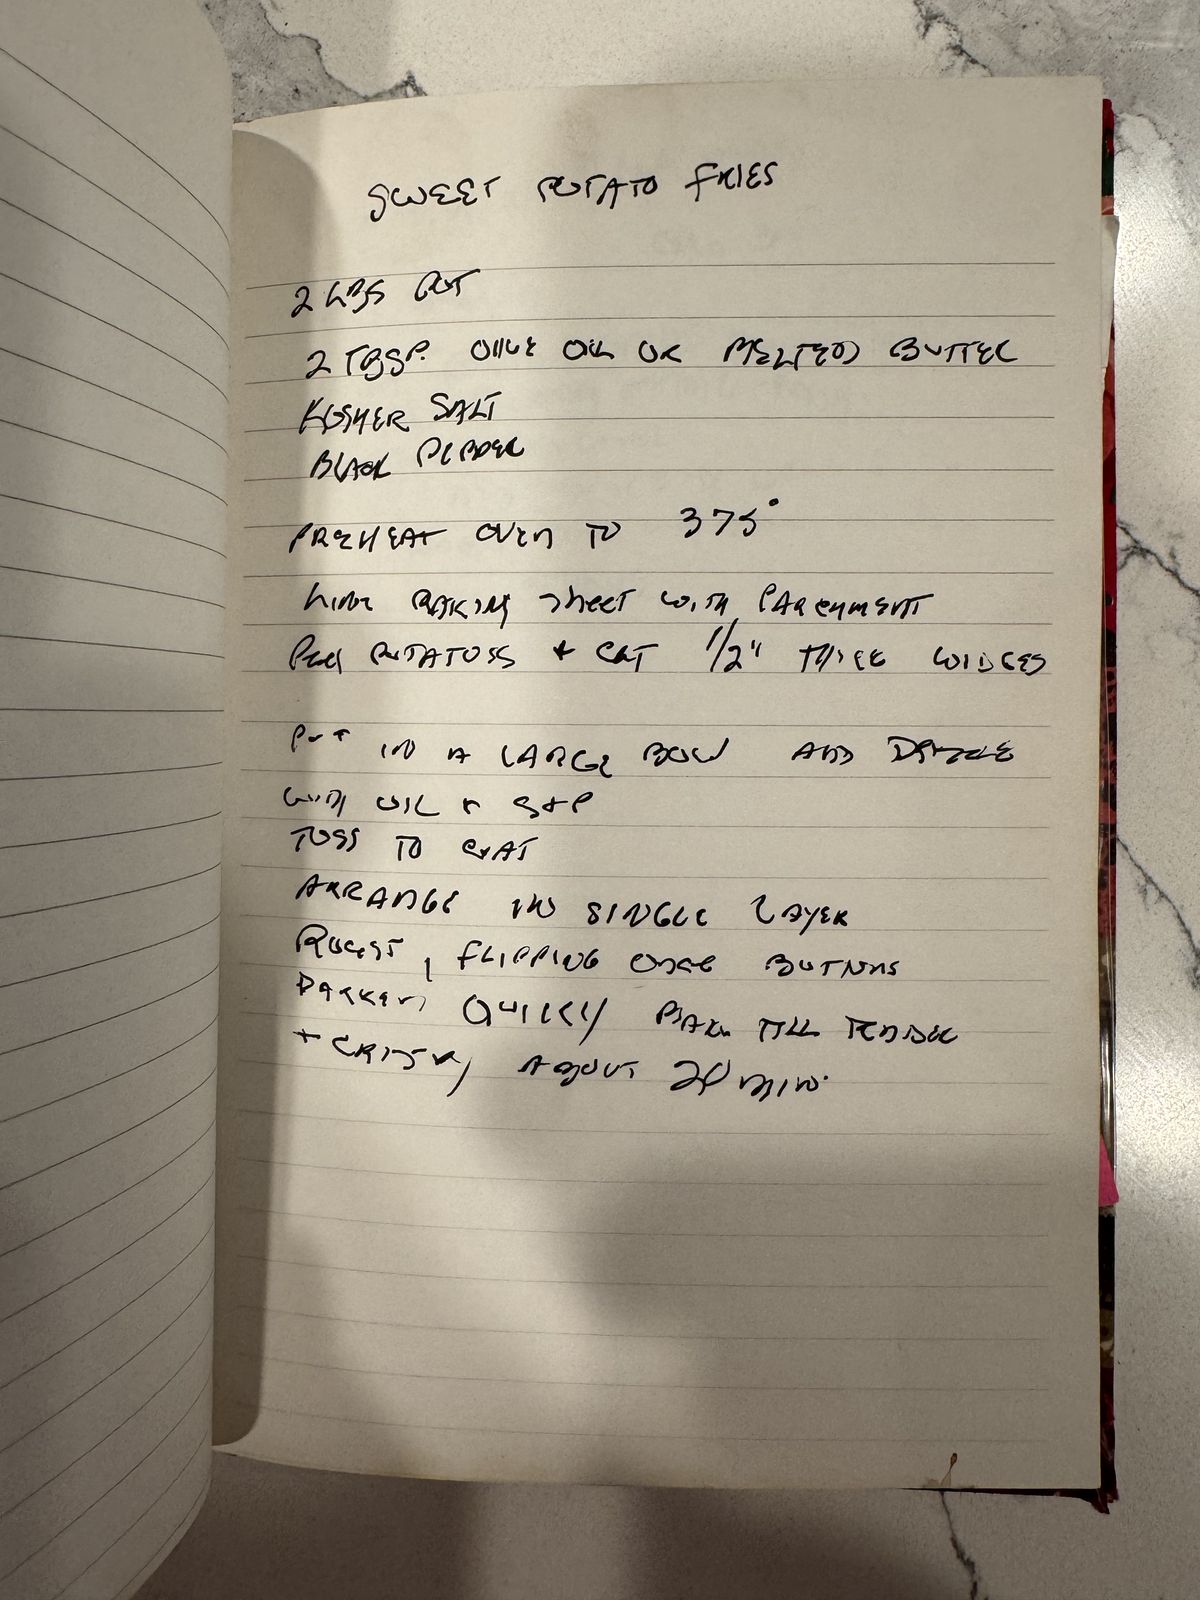 SWEET POTATO FRIES
2 LBS POT
2 TBSP. OLIVE OIL OR MELTED BUTTER
KOSHER SALT
BLACK PEPPER
PREHEAT OVEN TO 375°
Line BAKING Sheet WITH PARCHMENT
Peel POTATOES + CUT 1/2" THICK WEDGES
PUT IN A LARGE BOWL AND DRIZZLE
WITH OIL + S+P
TOSS TO COAT
ARRANGE IN SINGLE LAYER
ROAST, FLIPPING ONCE BOTTOMS
DARKEN, QUICKLY TILL TENDER
+ CRISPY, ABOUT 20 MIN.